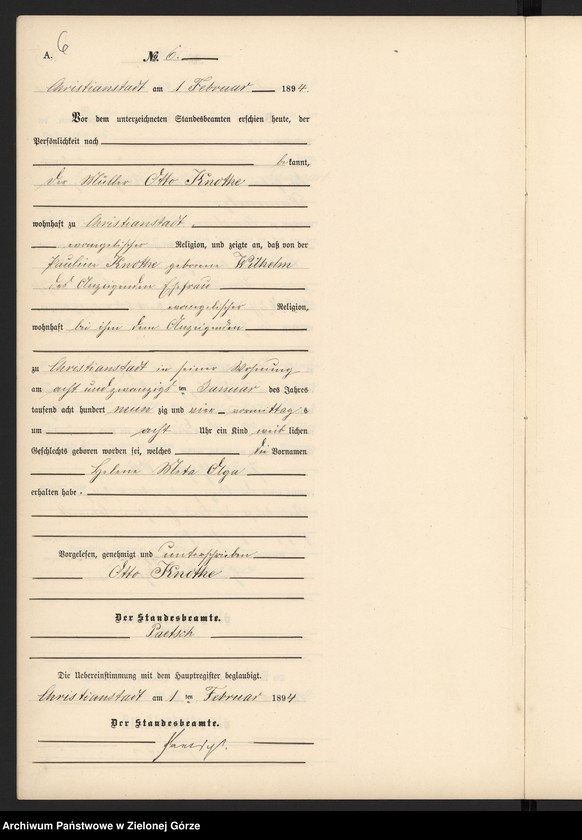 6
A. № 6.
Christianstadt am 1 Februar 1894.
Vor dem unterzeichneten Standesbeamten erschien heute, der
Persönlichkeit nach
bekannt,
der Müller Otto Knothe
wohnhaft zu Christianstadt,
evangelischer Religion, und zeigte an, daß von der
Pauline Knothe geborene Wilhelm
des Anzeigenden Ehefrau
evangelischer Religion,
wohnhaft bei ihm dem Anzeigenden
zu Christianstadt in seiner Wohnung
am acht und zwanzigsten Januar des Jahres
tausend acht hundert neunzig und vier vormittags
um acht Uhr ein Kind weiblichen
Geschlechts geboren worden sei, welches die Vornamen
Helene Meta Olga
erhalten habe.
Vorgelesen, genehmigt und unterschrieben
Otto Knothe
Der Standesbeamte.
Paetsch
Die Uebereinstimmung mit dem Hauptregister beglaubigt.
Christianstadt am 1ten Februar 1894
Der Standesbeamte.
Archiwum Państwowe w Zielonej Górze